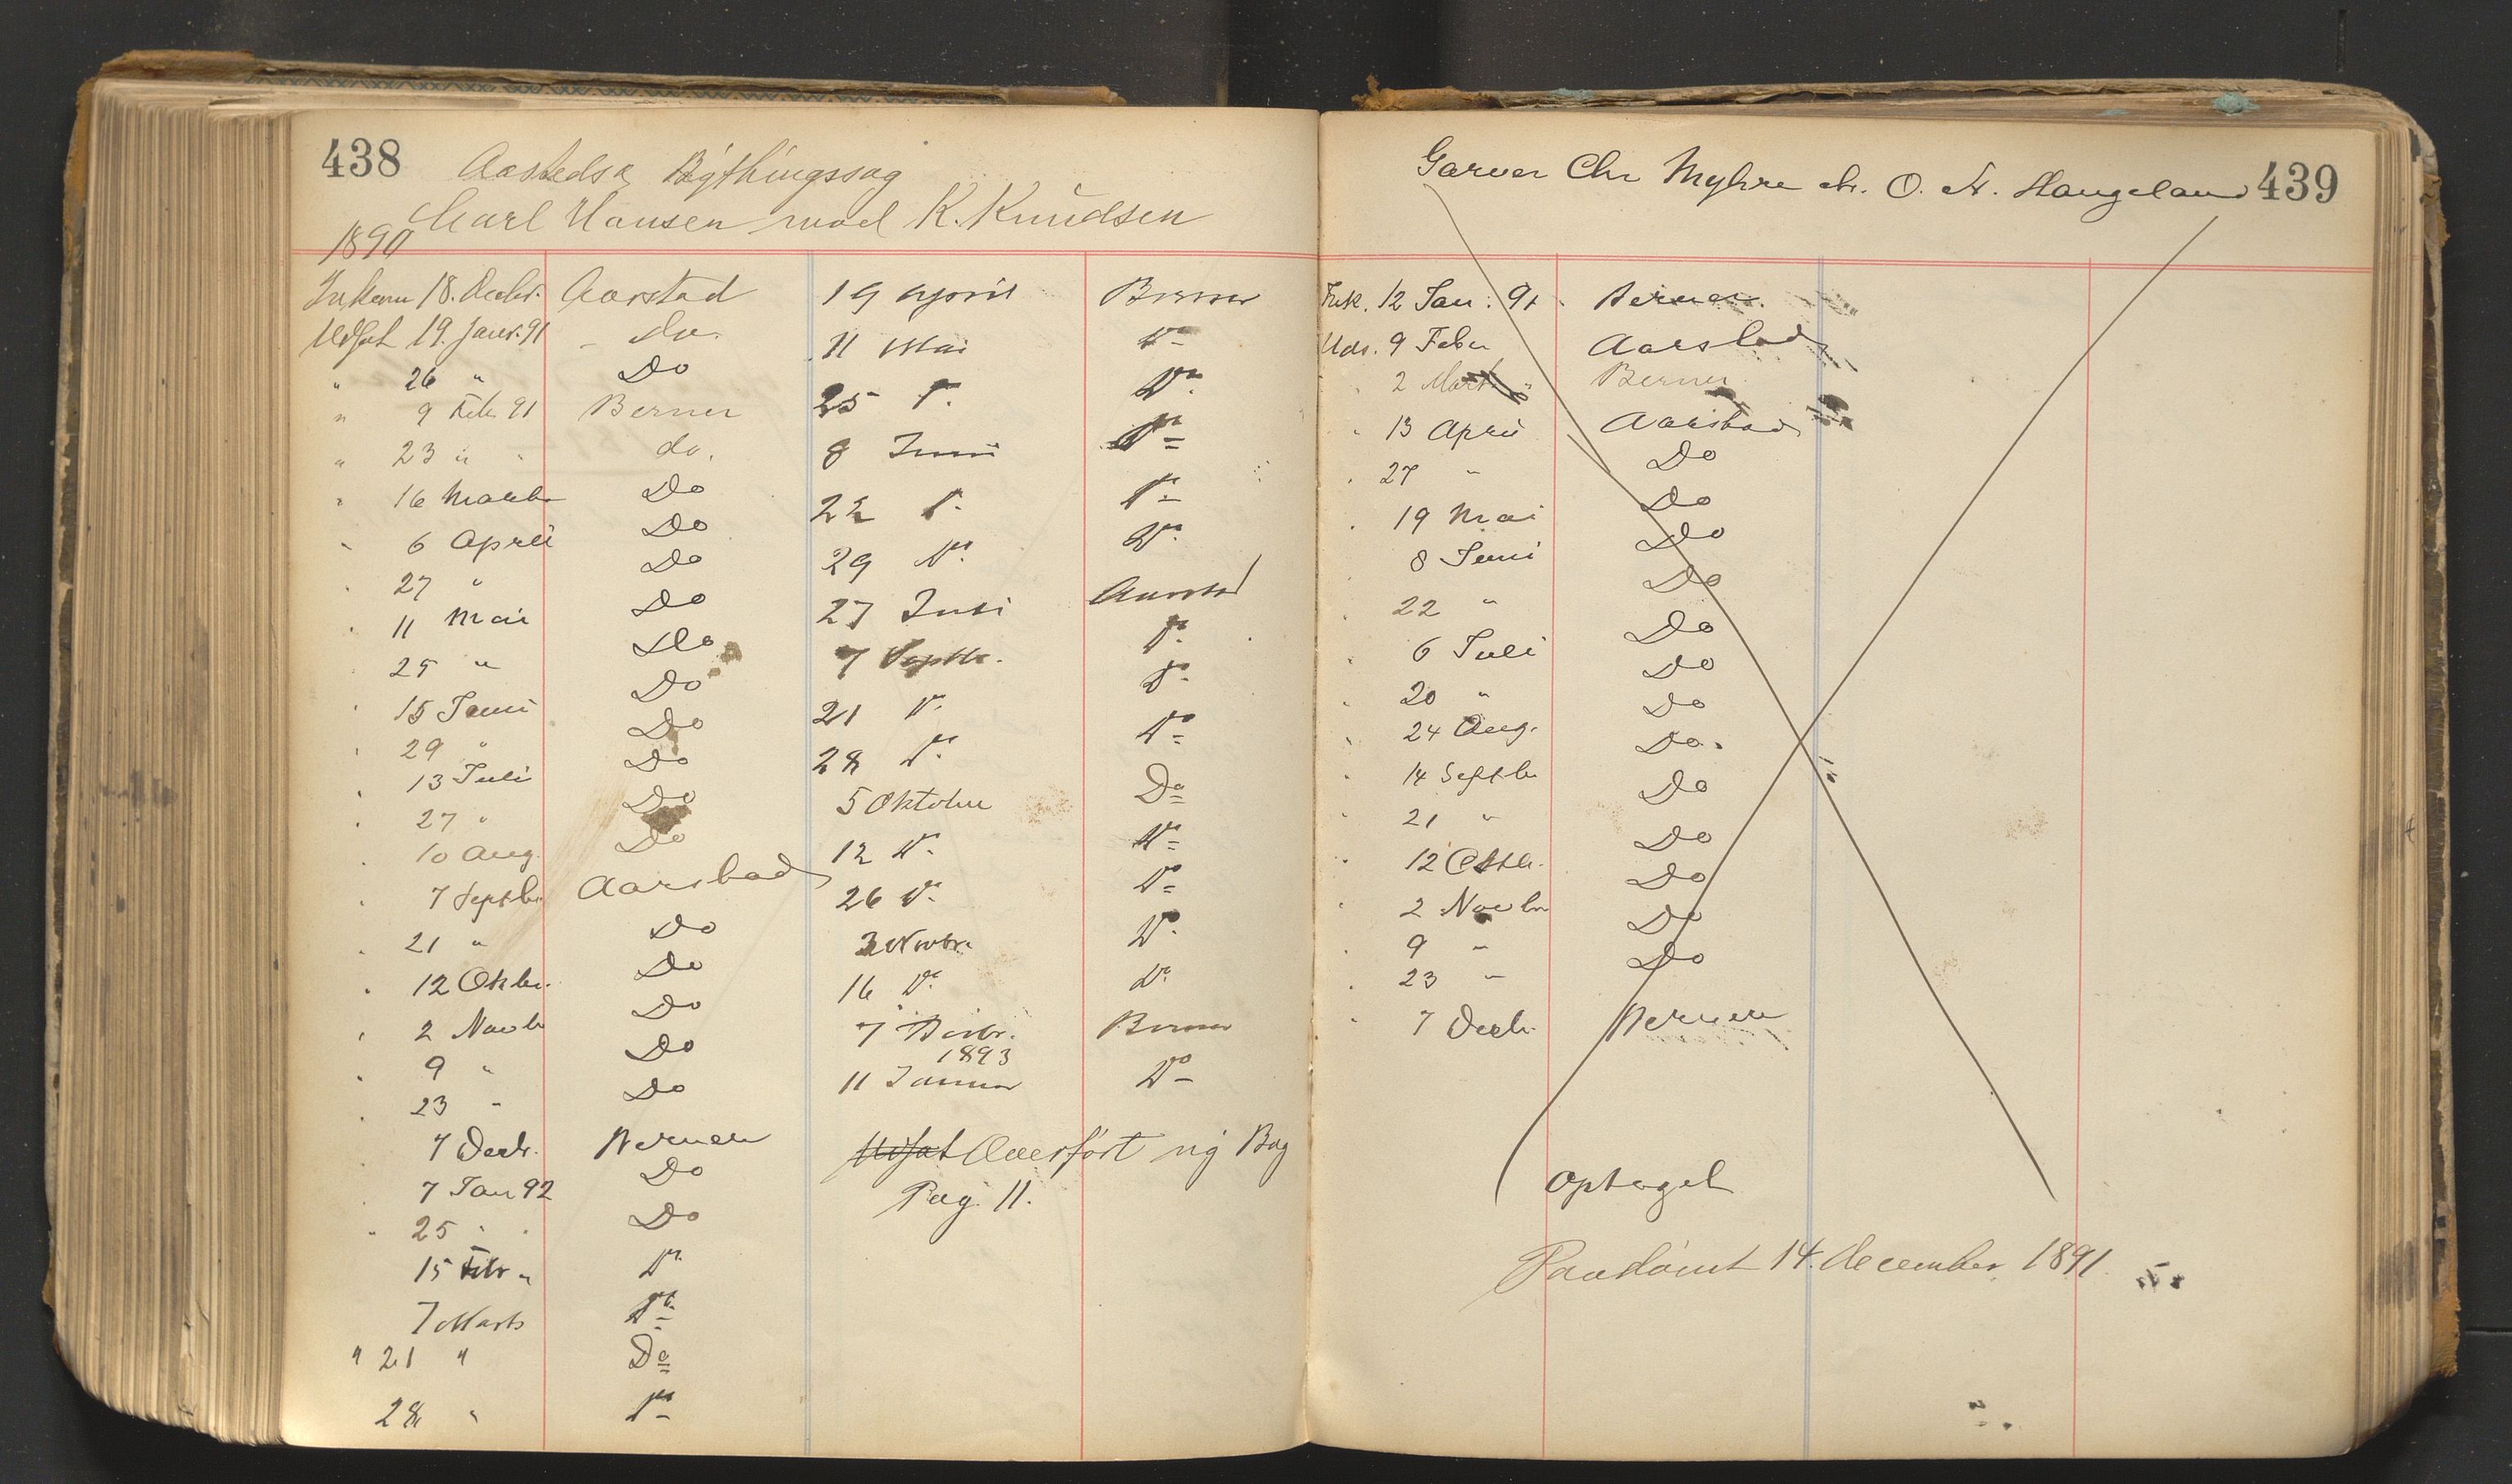 438
Aasteds & Bythingssag
Carl Hansen mod K. Knudsen
1890
Inkom 18. Decbr. Aarstad
Udsat 19. Janr. 91 - do.
" 26 " Do
" 9 Feb. 91 Berner
" 23 " " do.
" 16 Marts Do
" 6 April Do
" 27 " Do
" 11 Mai Do
25 " Do
" 15 Juni Do
" 29 " Do
" 13 Juli Do
" 27 " Do
" 10 Aug. Do
" 7 Septbr. Aarstad
" 21 " Do
" 12 Oktbr. Do
" 2 Novbr Do
" 9 " Do
" 23 " Do
7 Decbr. Berner
7 Jan 92 Do
" 25 " " Do
15 Febr " Do
7 Marts Do
" 21 " Do
28 " Do
19 April Berner
11 Mai Do
25 Do. Do.
8 Juni Do
22 Do. Do
29 Do. Do.
27 Juli Aarstad
7 Septbr. Do.
21 Do. Do.
28 Do. Do
5 Oktober Do
12 Do. Do
26 Do. Do
3 Novbr. Do.
16 Do. Do.
7 Decbr. Berner
1893
11 Januar Do
Udsat Overført ny Bog
Pag. 11.
439
Garver Chr Myhre ctr. O. N. Haugeland
Ink. 12 Jan. 91. Berner.
Uds. 9 Febr Aarstad
" 2 Marts " Berner
" 13 April Aarstad
" 27 " Do
" 19 Mai Do
8 Juni Do
" 22 " Do
" 6 Juli Do
" 20 " Do
" 24 Aug. Do
" 14 Septbr Do.
" 21 " Do
" 12 Oktbr. Do
" 2 Novbr Do
" 9 " Do
" 23 " Do
" 7 Decbr. Berner
Optaget
Paadømt 14. december 1891.